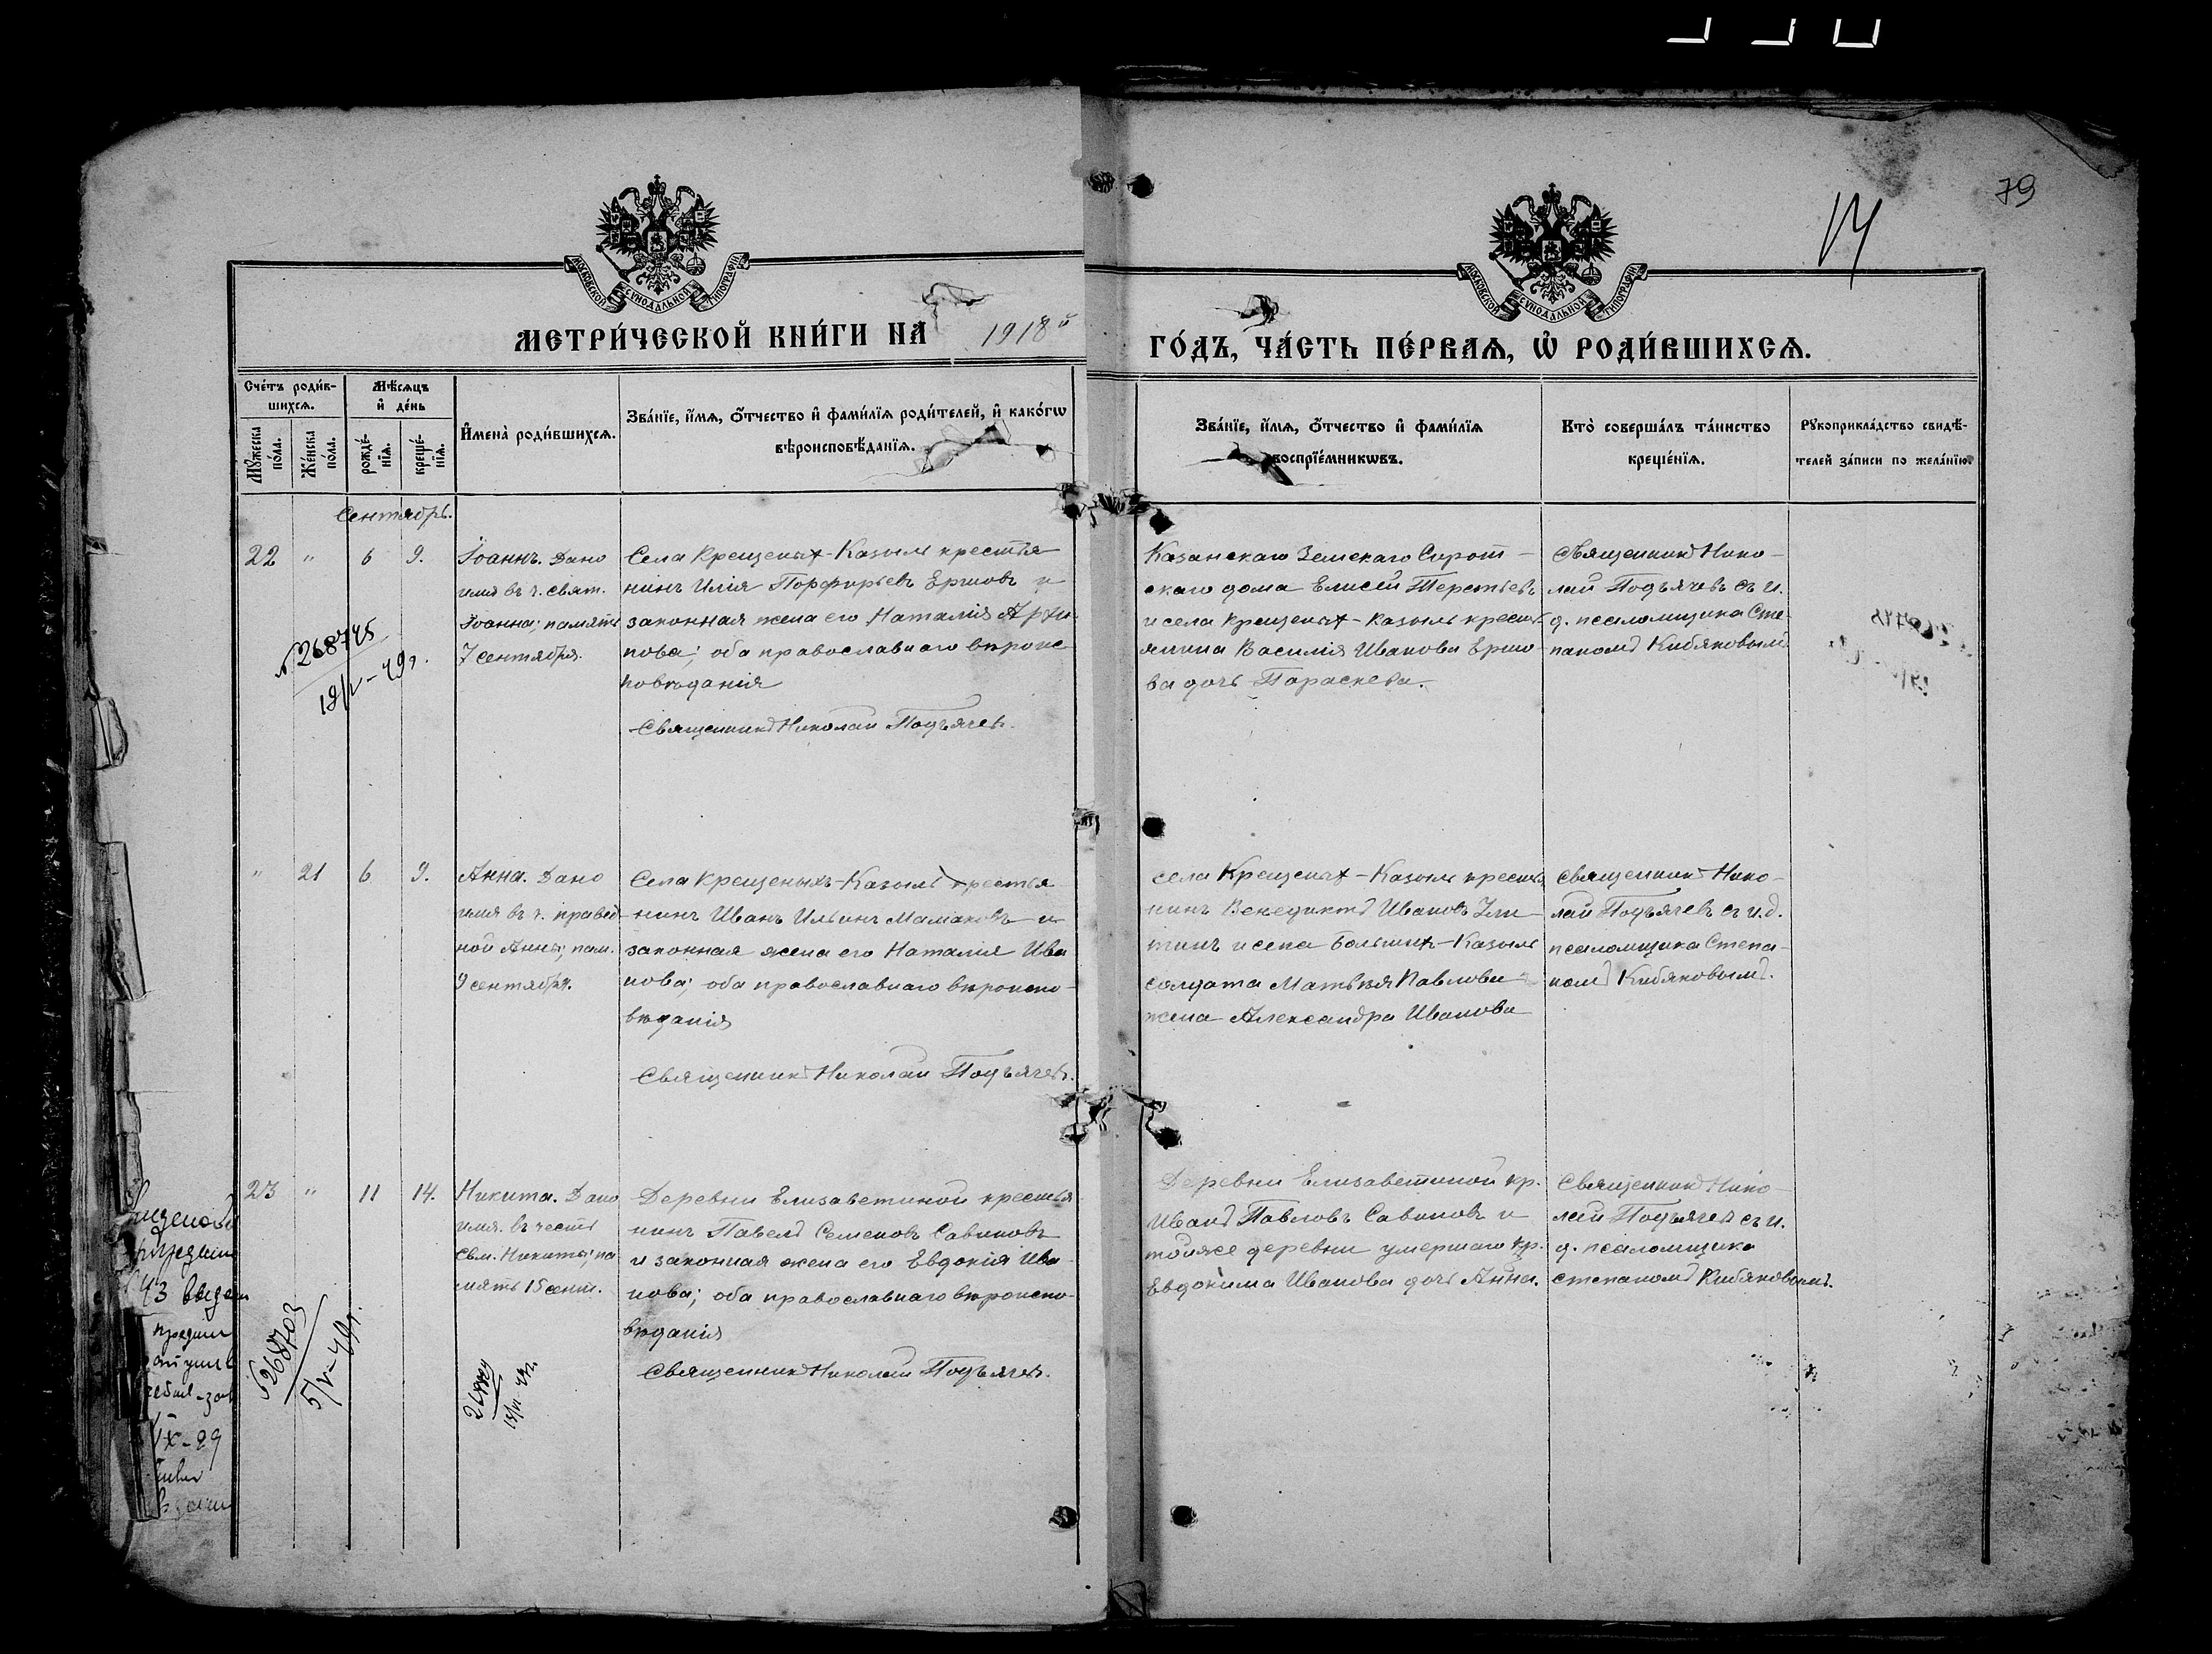 79
14
МОСКОВСКОЙ СУНОДАЛЬНОЙ ТИПОГРАФІИ
МОСКОВСКОЙ СУНОДАЛЬНОЙ ТИПОГРАФІИ
МЕТРИ́ЧЕСКОЙ КНИ́ГИ НА 1918й
ГО́ДЪ, ЧА́СТЬ ПЕ́РВАѦ, Ѡ҆ РОДИ́ВШИХСѦ.
Сче́тъ роди́в-
шихсѧ.
Мѣ́сѧцъ
и҆ де́нь
Мꙋ́жеска по́ла.
Же́нска по́ла.
рожде́-
нїѧ.
креще́-
нїѧ.
И҆мена̀ роди́вшихсѧ.
Зва́нїе, и҆́мѧ, ѻ҆́тчество и҆ фами́лїѧ роди́телей, и҆ како́гѡ
вѣроисповѣ́данїѧ.
Зва́нїе, и҆́мѧ, ѻ҆́тчество и҆ фами́лїѧ
воспрїе́мникѡвъ.
Кто̀ соверша́лъ та́инство
креще́нїѧ.
Рꙋкоприкла́дство свидѣ́-
телей за́писи по жела́нїю.
Сентябрь.
22 " 6 9.
Іоаннъ. Дано
имя въ ч. свят.
Іоанна; память
7 сентября.
№268745
19/V-49г.
Села Крещеных-Казыль крестья
нинъ Илія Порфирьевъ Ершовъ и
законная жена его Наталія Архи
пова; оба православнаго вѣроис
повѣданія
Священникъ Николай Подъячев.
Казанскаго Земскаго Сирот-
скаго дома Елисей Терентьевъ
и села Крещеных-Казыль крест
янина Василія Иванова Ершо
ва дочь Параскева.
Священникъ Нико-
лай Подъячевъ съ и.
д. псаломщика Сте-
паномъ Кибяковымъ
" 21 6 9.
Анна. Дано
имя въ ч. правед
ной Анны; пам.
9 сентября.
Села Крещеныхъ-Казыль крестья
нинъ Иванъ Ильинъ Мамаковъ и
законная жена его Наталія Ива
нова; оба православнаго вѣроиспо-
вѣданія
Священникъ Николай Подъячев.
села Крещеных-Казыль крестья
нинъ Венедиктъ Ивановъ
тинъ и села Больших-Казыль
солдата Матвѣя Павлова
жена Александра Иванова
священникъ Нико-
лай Подъячевъ съ и.д.
псаломщика Степа-
номъ Кибяковымъ.
23 " 11 14.
Никита. Дано
имя въ честь
свм. Никиты; па
мять 15 сент.
№268703
5/V-49г.
Деревни Елизаветиной крестья
нинъ Павелъ Семеновъ Савиновъ
и законная жена его Евдокія Ива
нова; оба православнаго вѣроиспо-
вѣданія
Священникъ Николай Подъячев.
Деревни Елизаветиной кр.
Иванъ Павловъ Савиновъ и
тойже деревни умершаго кр.
Евдокима Иванова дочь Анна.
Священникъ Нико-
лай Подъячев съ и.
д. псаломщика
степаномъ Кибяковымъ.